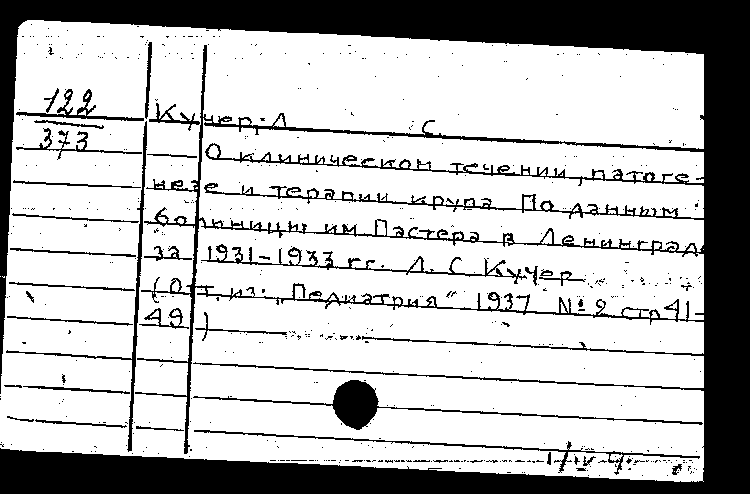 122
373
Кучер, Л. С.
О клиническом течении, патоге-
незе и терапии крупа По данным
больницы им Пастера в Ленинграде
за 1931-1933 гг. Л. С. Кучер
(Отт. из: „Педиатрия“ 1937 № 2 стр 41-
49)